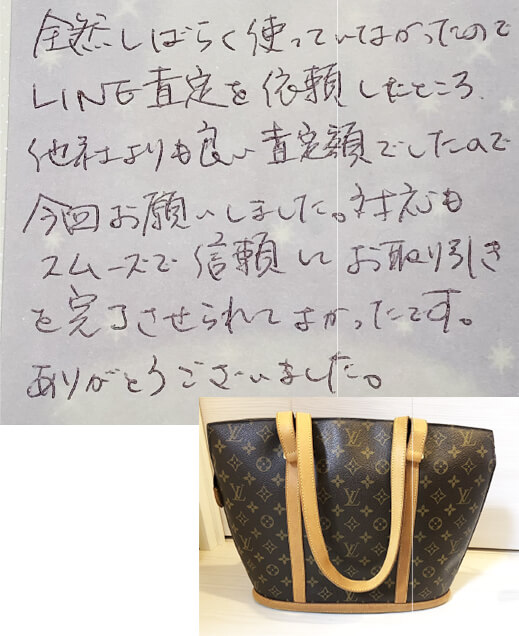 全然しばらく使っていなかったので
LINE査定を依頼したところ、
他社よりも良い査定額でしたので
今回お願いしました。対応も
スムーズで信頼してお取り引き
を完了させられてよかったです。
ありがとうございました。